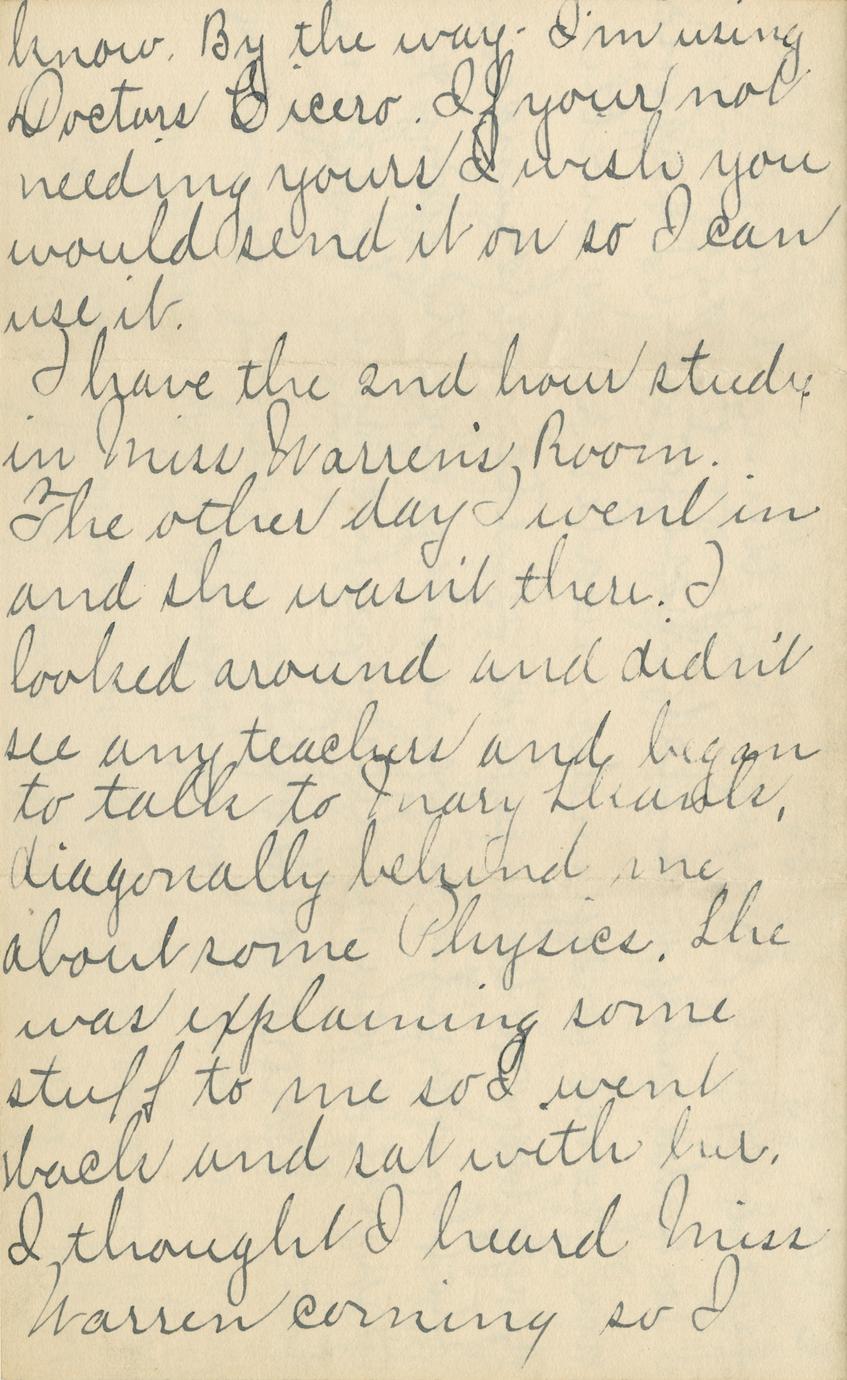 know. By the way- I'm using
Doctors Cicero. If your not
needing yours I wish you
would send it on so I can
use it.
I have the 2nd hour study
in Miss Warren's Room.
The other day I went in
and she wasn't there. I
looked around and didn't
see any teachers and began
to talk to Mary
diagonally behind me
about some Physics. She
was explaining some
stuff to me so I went
back and sat with her.
I thought I heard Miss
Warren coming so I